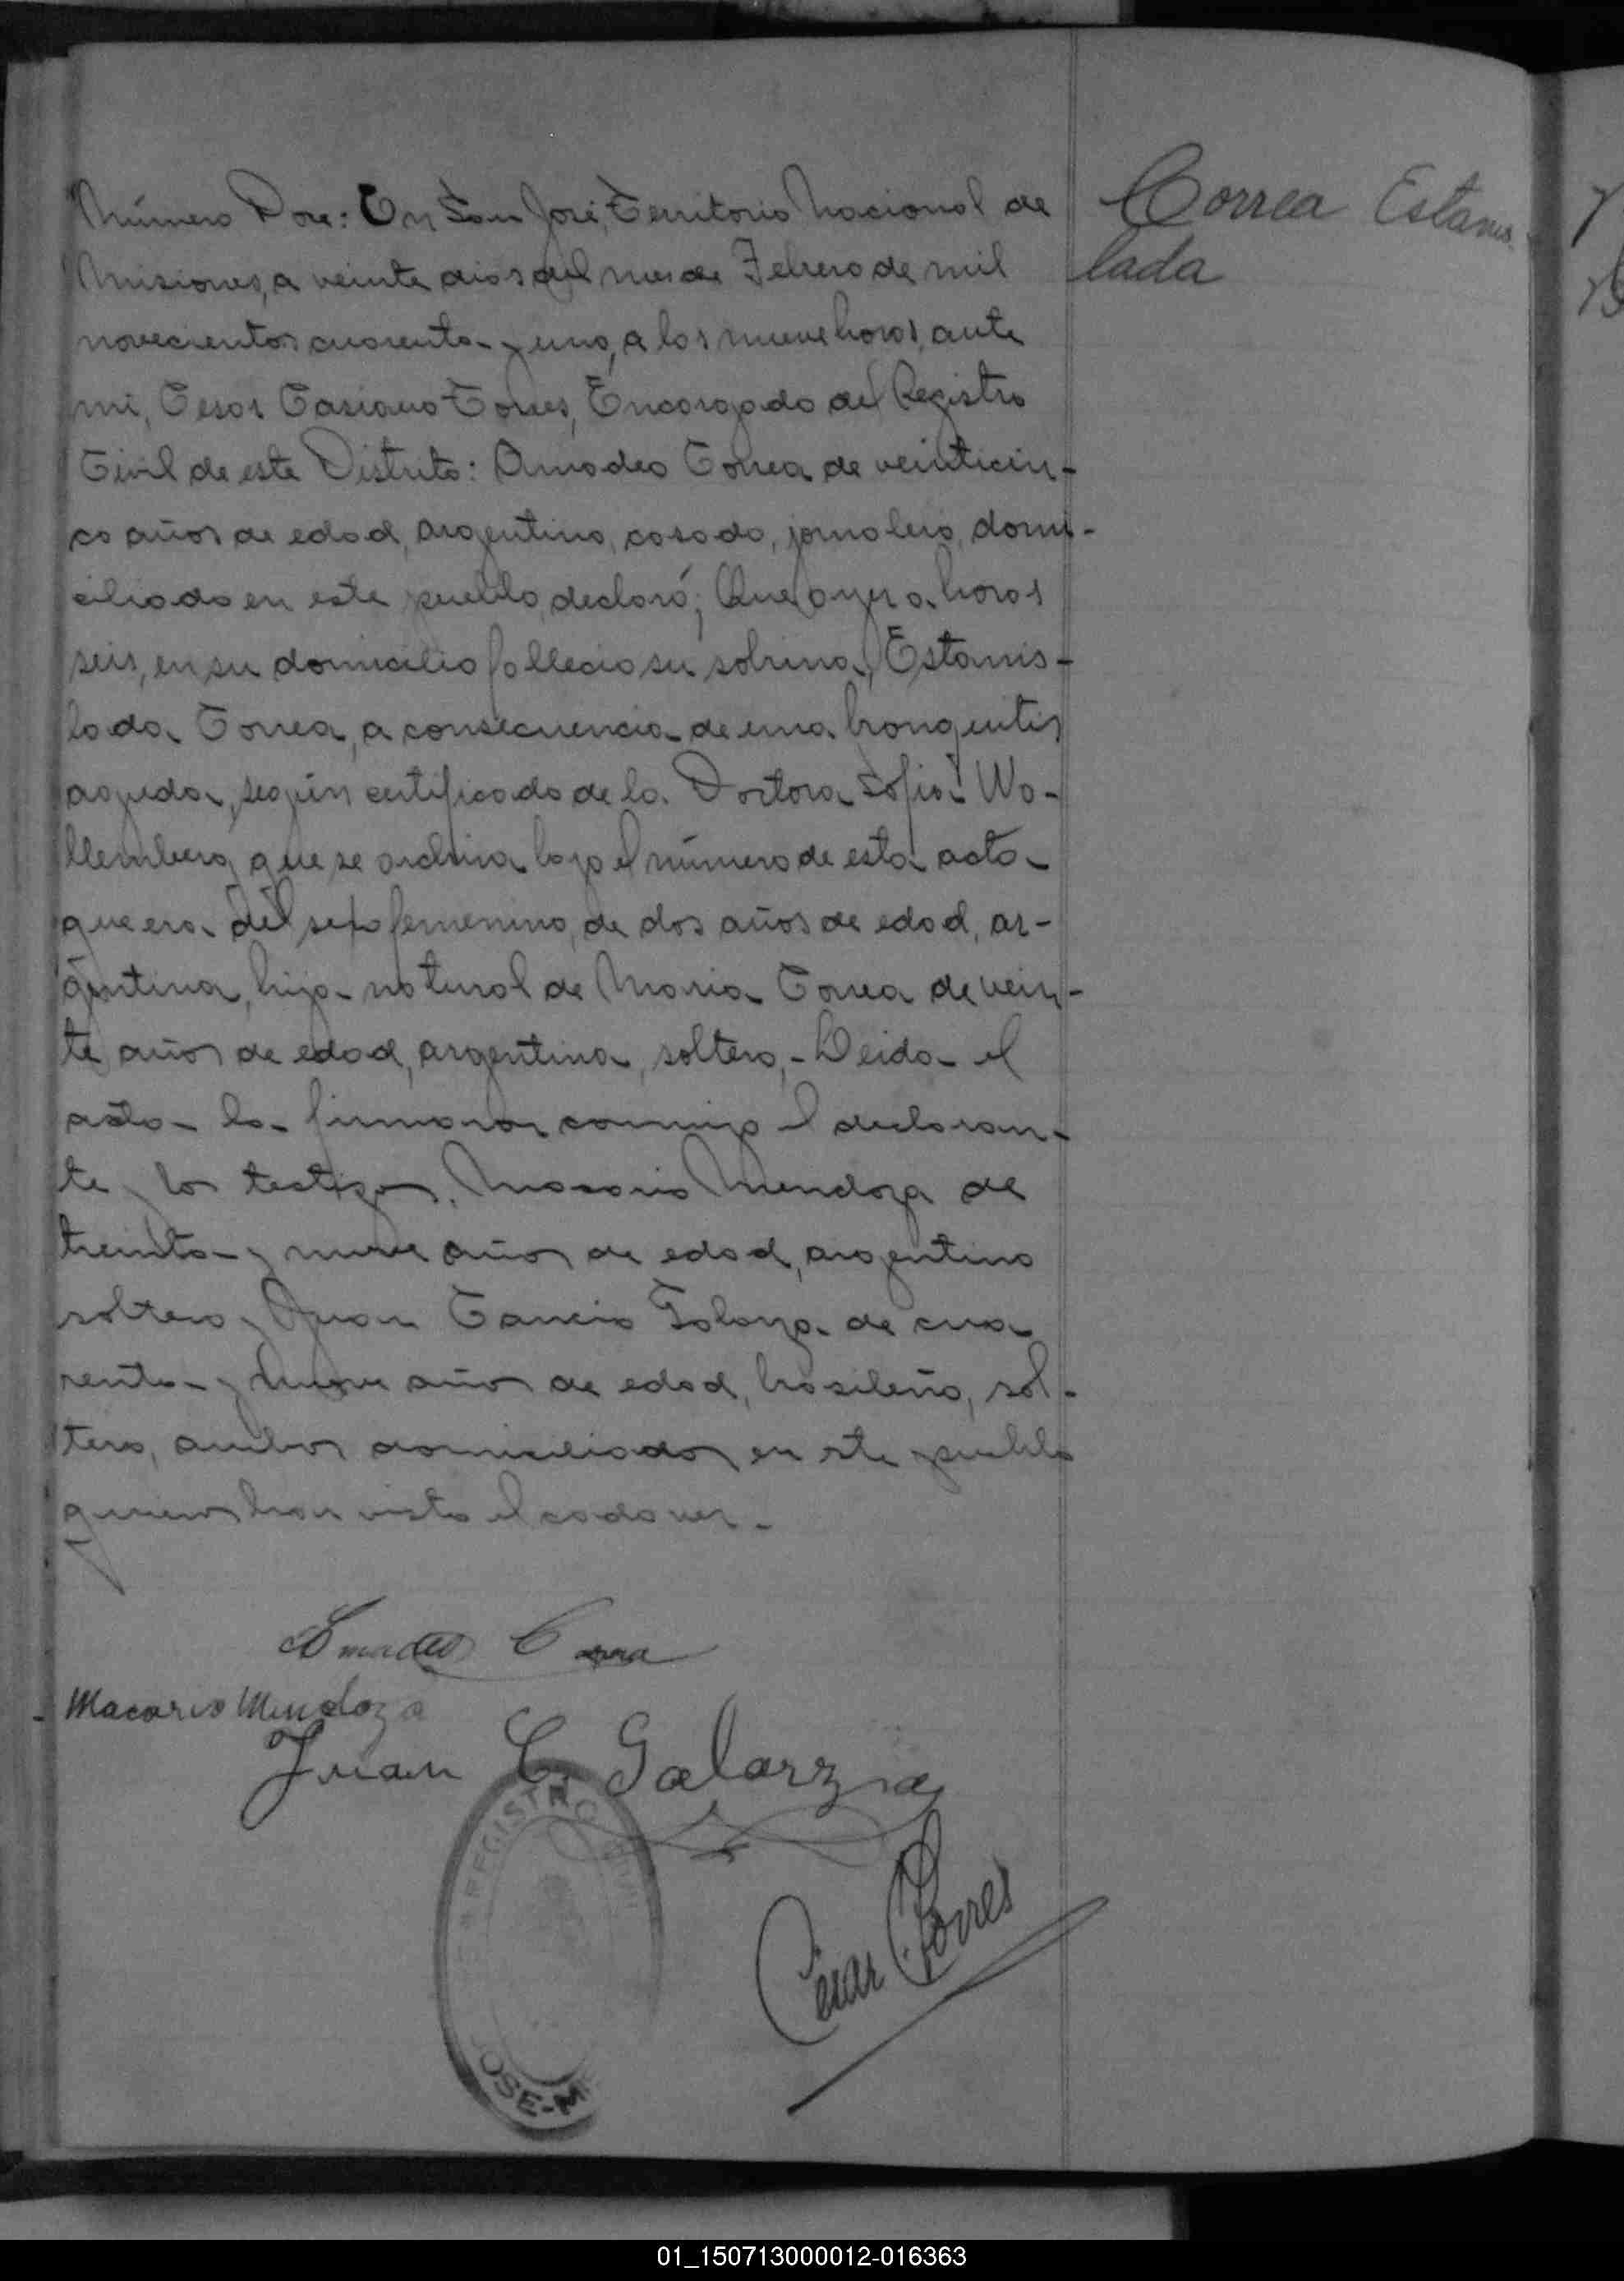 Número Doce: En San José, Territorio Nacional de
Misiones, a veinte dias del mes de Febrero de mil
novecientos cuarenta y uno, a las nueve horas, ante
mi, Cesar Casiano Torres, Encargado del Registro
Civil de este Distrito: Amadeo Correa de veinticin-
co años de edad, argentino, casado, jornalero, domi-
ciliado en este pueblo, declaró; Que ayer a horas
seis, en su domicilio fallecio su sobrina, Estanis-
lada Correa, a consecuencia de una bronquitis
aguda, según certificado de la Doctora Sofia Wo-
llemberg que se archiva bajo el número de esta acta
que era del sexo femenino, de dos años de edad, ar-
gentina, hija natural de Maria Correa de vein-
te años de edad, argentina, soltera,- Leida el
acta la firmaron conmigo el declaran-
te y los testigos, Macario Mendoza de
treinta y nueve años de edad, argentino
soltero y Juan Galarza de cua
renta y nueve años de edad, brasileño, sol-
tero, ambos domiciliados en este pueblo
quienes han visto el cadaver.-
Correa Estanis
lada
Amadeo Correa
Macario Mendoza
Juan C. Galarza
César Torres
REGISTRO CIVIL
JOSE-M
01_150713000012-016363